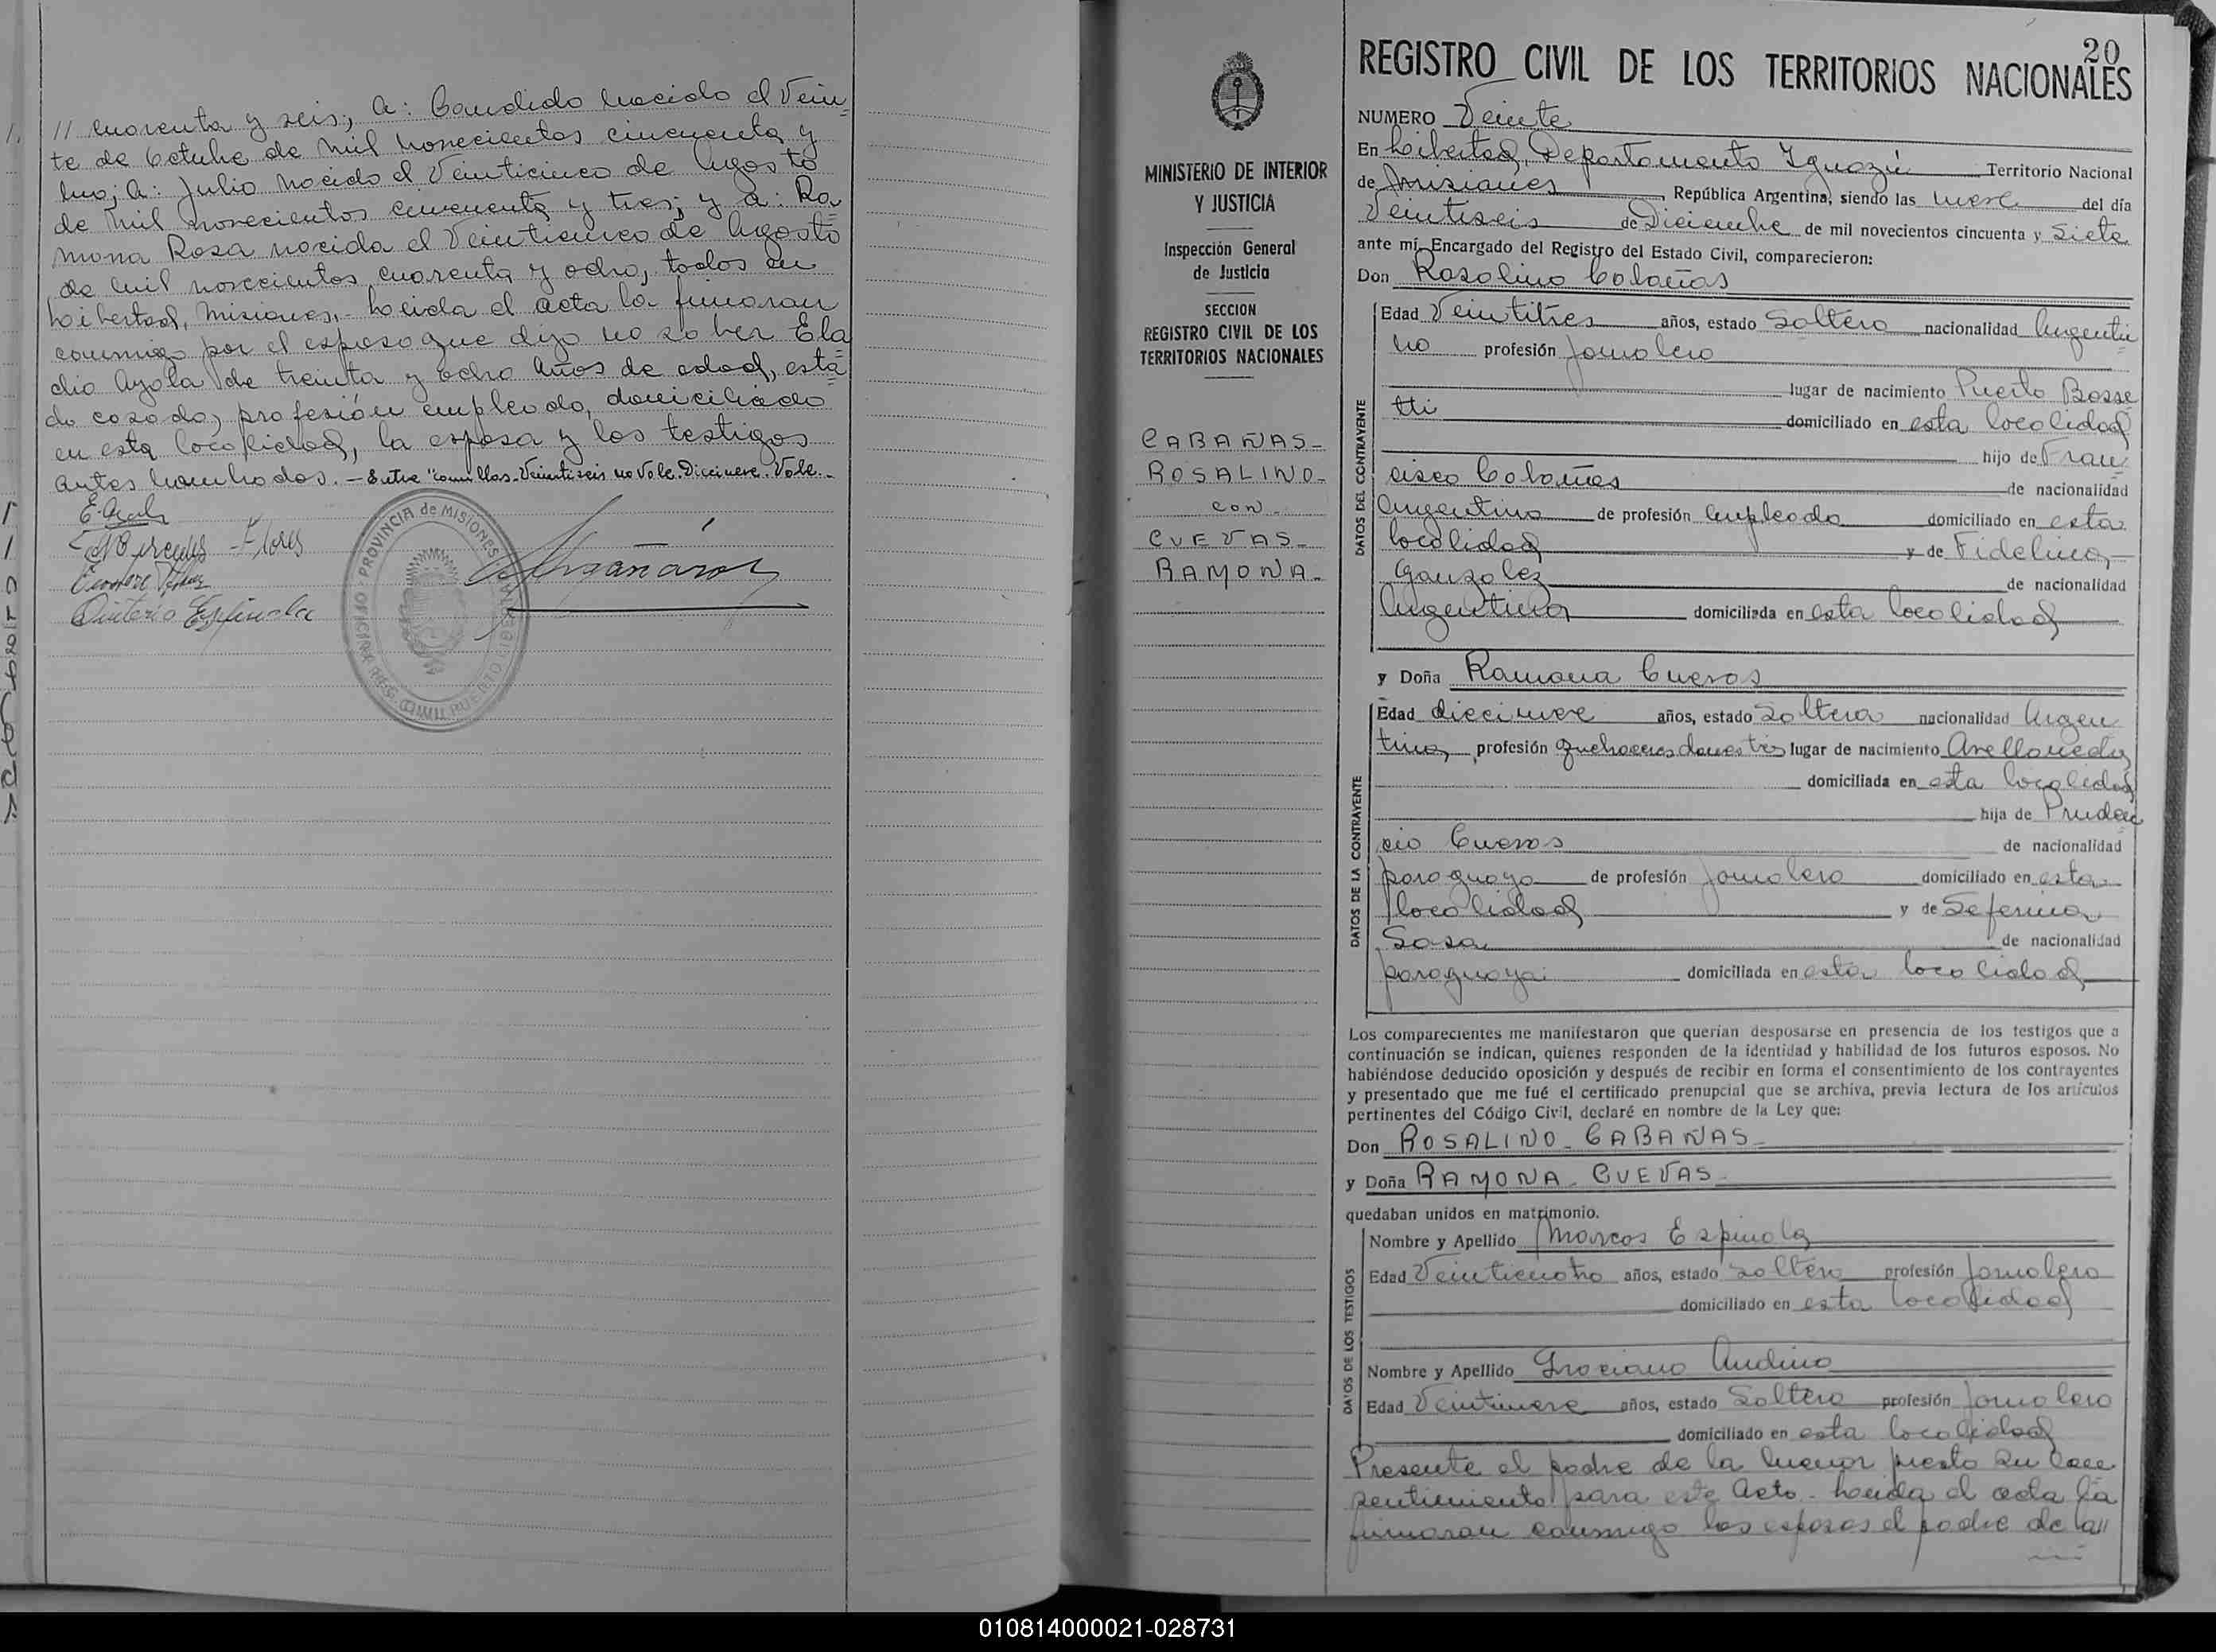 // cuarenta y seis; a: Candido nacido el Vein=
te de Octubre de mil novecientos cincuenta y
uno; a: Julio nacido el Veinticinco de Agosto
de mil novecientos cincuenta y tres; y a: Ra=
mona Rosa nacida el Veinticinco de Agosto
de mil novecientos cuarenta y ocho, todos en
Libertad, Misiones.- Leida el acta la firmaron
conmigo por el esposo que dijo no saber Ela=
dio Ayala de treinta y ocho años de edad, esta=
do casado, profesión empleado, domiciliado
en esta localidad, la esposa y los testigos
antes nombrados. - Entre "comillas. Veintiseis no Vale. Diecinueve. Vale.-
E. Ayala
Flores
Quinterio Espindola
PROVINCIA de MISIONES
MINISTERIO DE INTERIOR
Y JUSTICIA
Inspección General
de Justicia
SECCION
REGISTRO CIVIL DE LOS
TERRITORIOS NACIONALES
CABAÑAS-
ROSALINO-
con-
CUEVAS-
RAMONA-
20
REGISTRO CIVIL DE LOS TERRITORIOS NACIONALES
NUMERO Veinte
En Libertad, Departamento Iguazú Territorio Nacional
de Misiones, República Argentina, siendo las nueve del día
Veintiseis de Diciembre de mil novecientos cincuenta y Siete
ante mí, Encargado del Registro del Estado Civil, comparecieron:
Don Rosalino Cabañas
DATOS DEL CONTRAYENTE
Edad Veintitres años, estado Soltero nacionalidad Argenti
no profesión Jornalero
lugar de nacimiento Puerto Bosse
tti domiciliado en esta localidad
hijo de Fran
cisco Cabañas de nacionalidad
Argentino de profesión Empleado domiciliado en esta
localidad y de Fidelina
Gonzalez de nacionalidad
Argentina domiciliada en esta localidad
y Doña Ramona Cuevas
DATOS DE LA CONTRAYENTE
Edad diecinueve años, estado Soltera nacionalidad Argen
tina, profesión quehaceres domestics lugar de nacimiento Avellaneda
domiciliada en esta localidad
hija de Pruden
cio Cuevas de nacionalidad
paraguayo de profesión Jornalero domiciliado en esta
localidad y de Seferina
Sosa de nacionalidad
paraguaya domiciliada en esta localidad
Los comparecientes me manifestaron que querían desposarse en presencia de los testigos que a
continuación se indican, quienes responden de la identidad y habilidad de los futuros esposos. No
habiéndose deducido oposición y después de recibir en forma el consentimiento de los contrayentes
y presentado que me fué el certificado prenupcial que se archiva, previa lectura de los artículos
pertinentes del Código Civil, declaré en nombre de la Ley que:
Don ROSALINO - CABAÑAS
y Doña RAMONA - CUEVAS
quedaban unidos en matrimonio.
DATOS DE LOS TESTIGOS
Nombre y Apellido Marcos Espinola
Edad Veinticuatro años, estado soltero profesión Jornalero
domiciliado en esta localidad
Nombre y Apellido Graciano Andino
Edad Veintinueve años, estado Soltero profesión Jornalero
domiciliado en esta localidad
Presente el padre de la menor presta su con
sentimiento para este Acto - Leida el acta la
firmaron conmigo los esposos el padre de la//
010814000021-028731